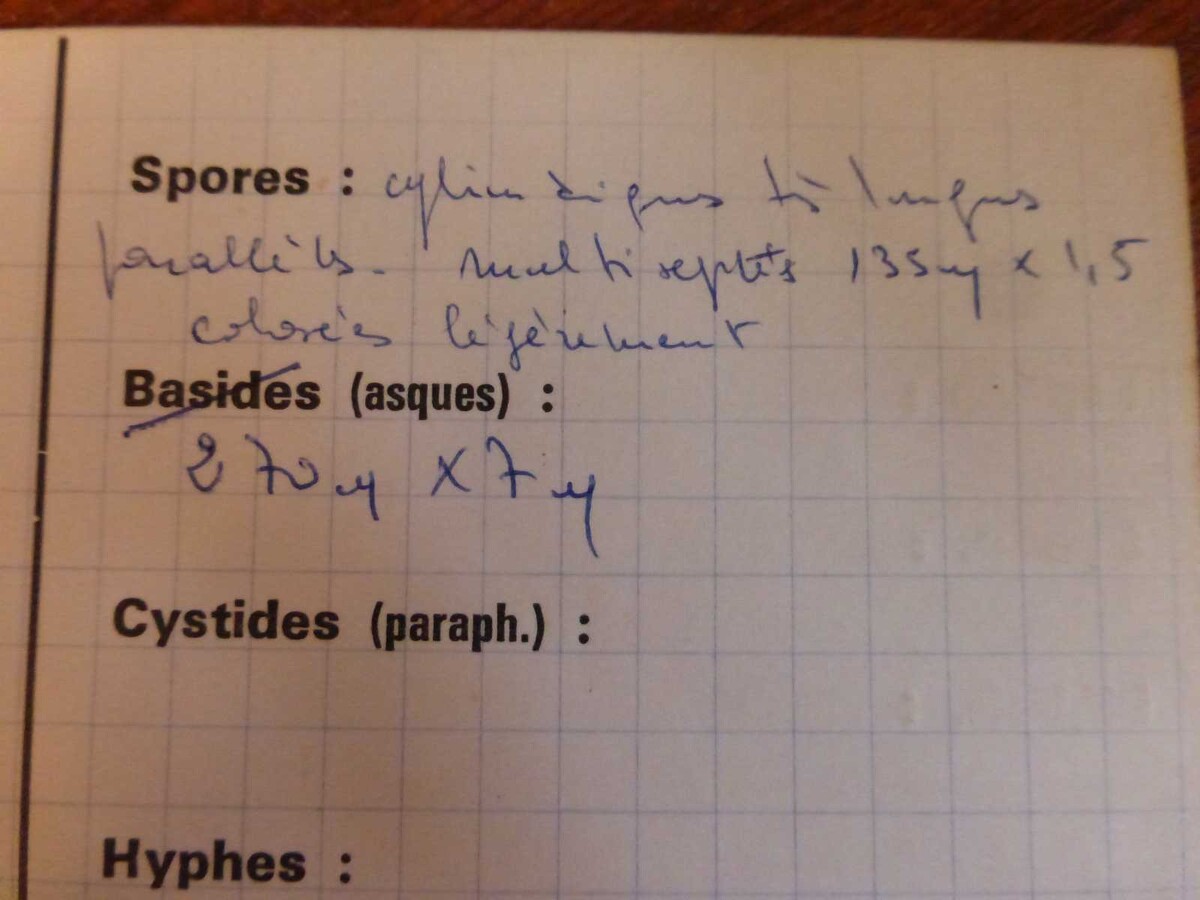 Spores : cylindriques ts longues
parallèles. multiseptés 135 µ x 1,5
colorées légèrement
Basides (asques) :
270 µ x 7 µ
Cystides (paraph.) :
Hyphes :